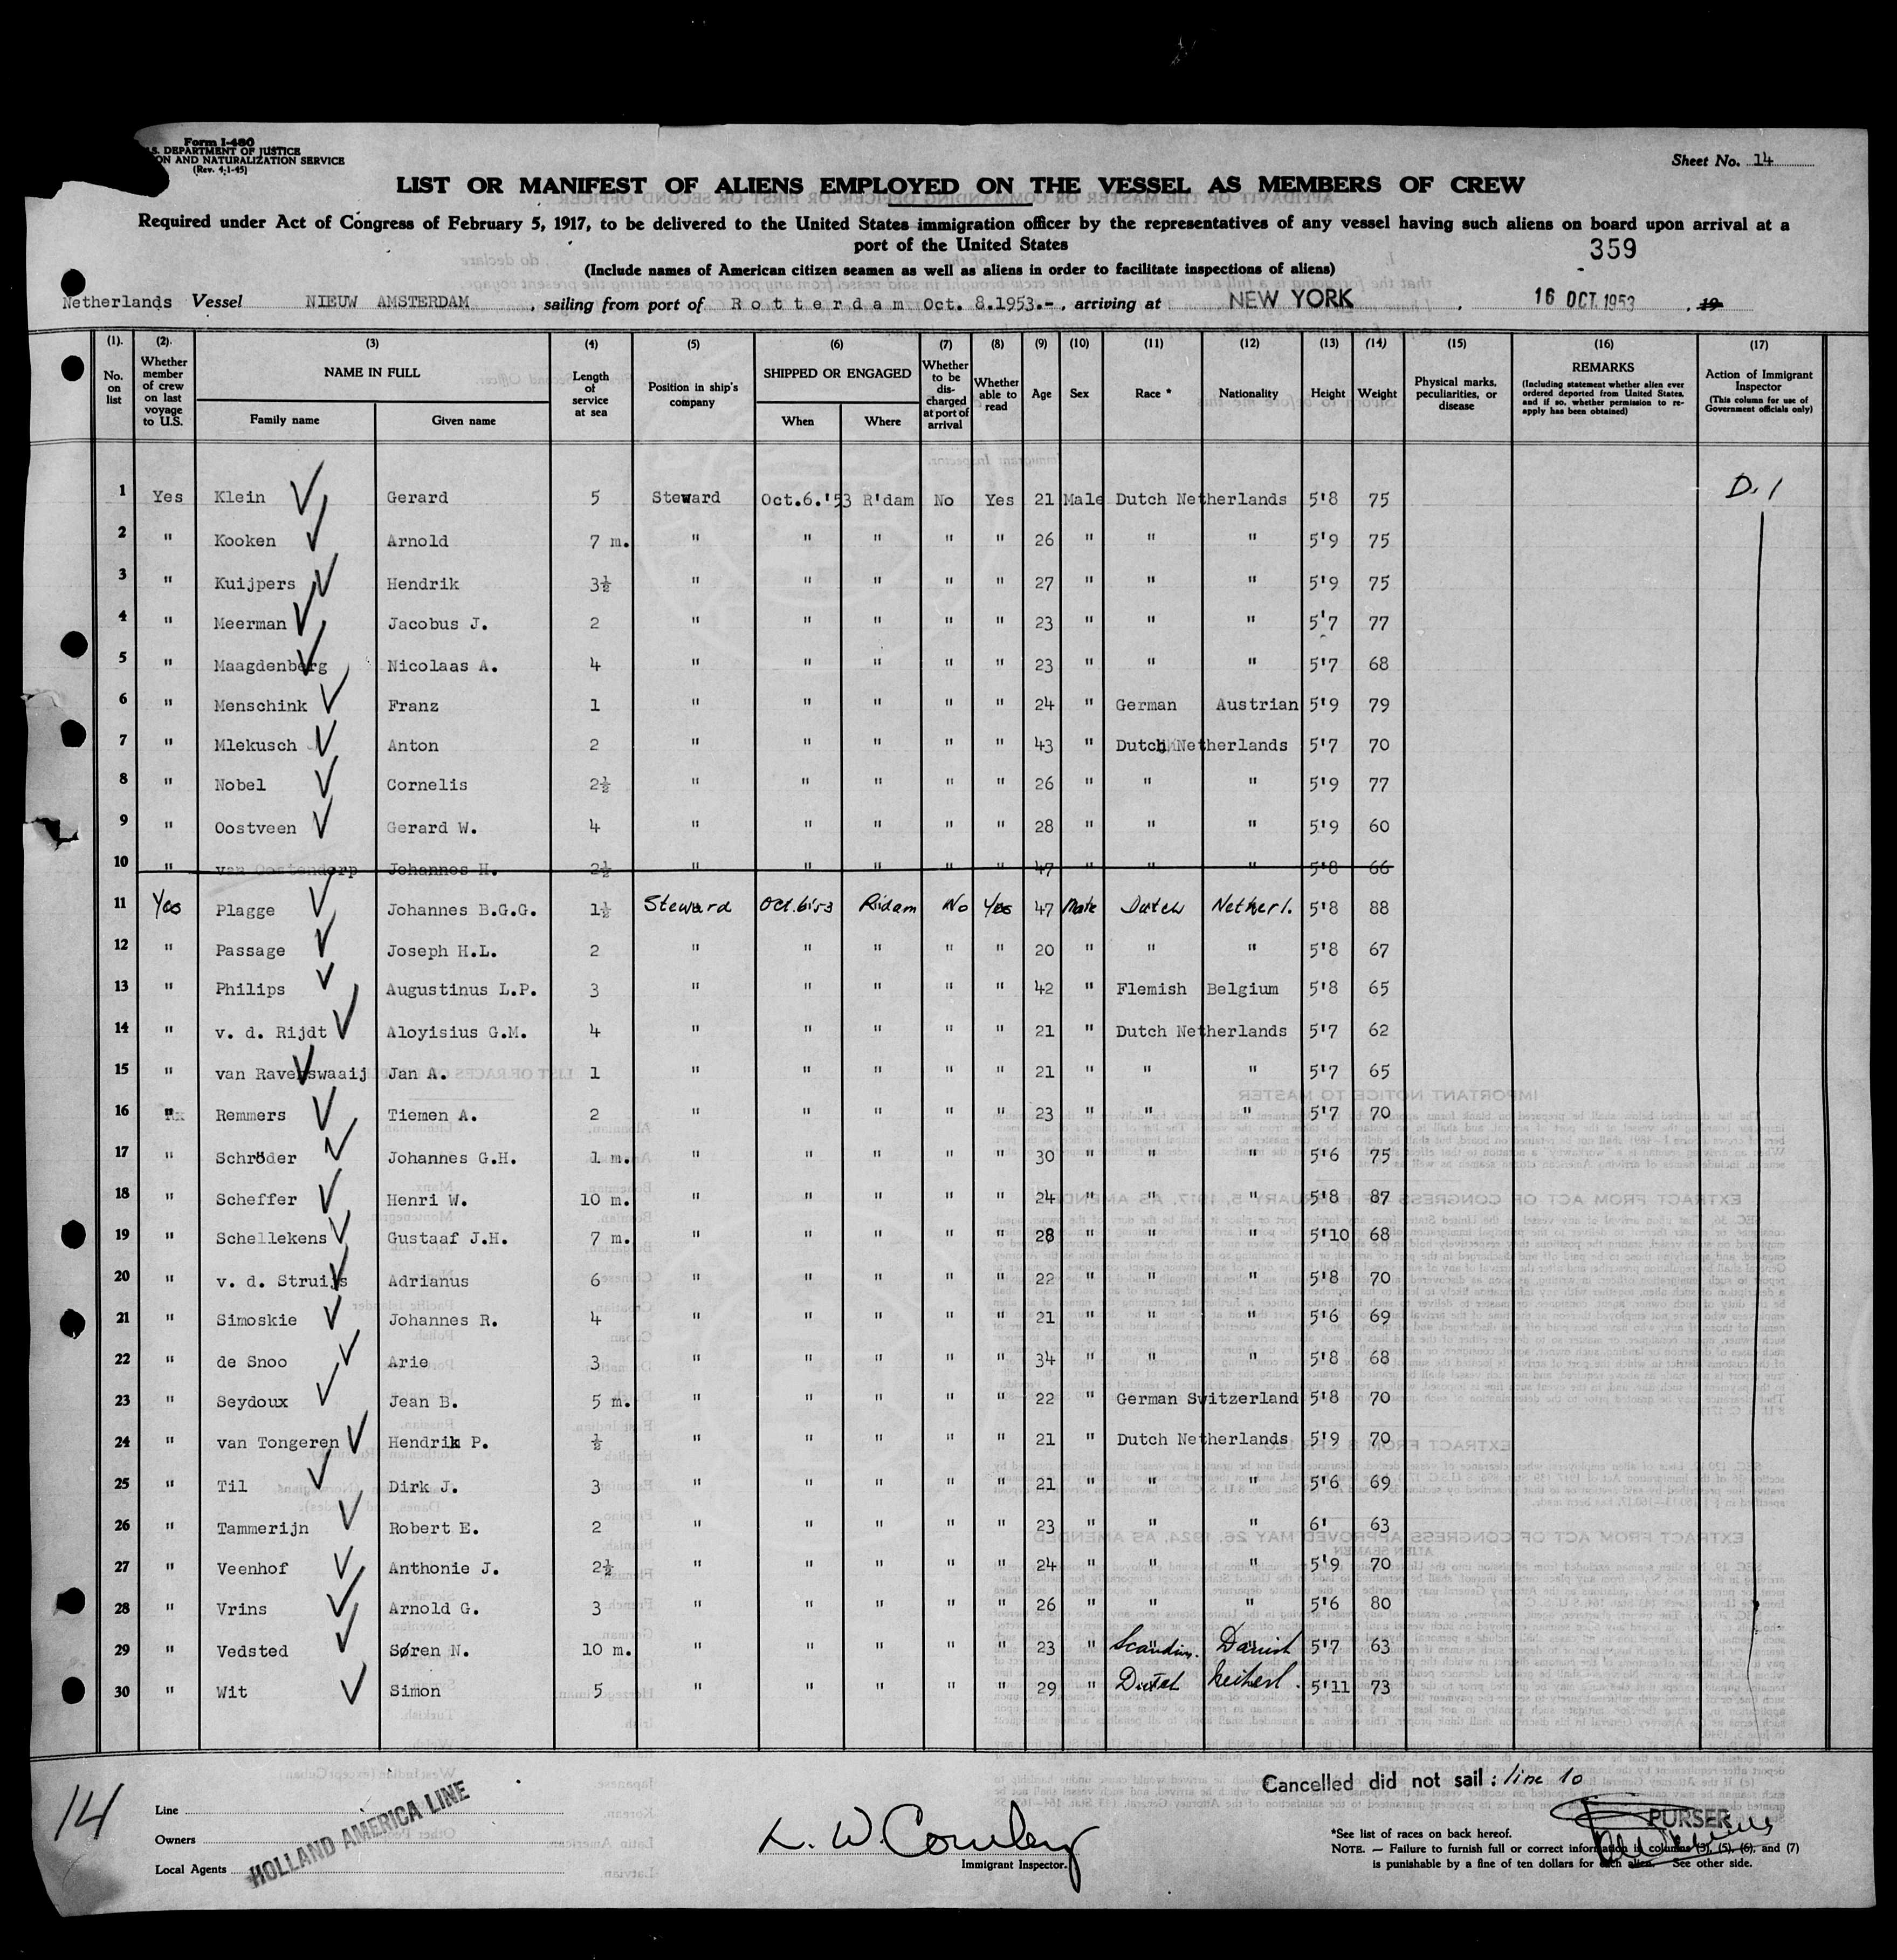 Form I-480
S. DEPARTMENT OF JUSTICE
ON AND NATURALIZATION SERVICE
(Rev. 4-1-45)
Sheet No. 14
LIST OR MANIFEST OF ALIENS EMPLOYED ON THE VESSEL AS MEMBERS OF CREW
Required under Act of Congress of February 5, 1917, to be delivered to the United States immigration officer by the representatives of any vessel having such aliens on board upon arrival at a
port of the United States
359
(Include names of American citizen seamen as well as aliens in order to facilitate inspections of aliens)
Netherlands Vessel NIEUW AMSTERDAM, sailing from port of Rotterdam Oct. 8.1953.-, arriving at NEW YORK, 16 OCT 1953, 19
(1). No. on list (2). Whether member of crew on last voyage to U.S. (3) NAME IN FULL Family name Given name (4) Length of service at sea (5) Position in ship's company (6) SHIPPED OR ENGAGED When Where (7) Whether to be discharged at port of arrival (8) Whether able to read (9) Age (10) Sex (11) Race * (12) Nationality (13) Height (14) Weight (15) Physical marks, peculiarities, or disease (16) REMARKS (Including statement whether alien ever ordered deported from United States, and if so, whether permission to reapply has been obtained) (17) Action of Immigrant Inspector (This column for use of Government officials only)
1 Yes Klein Gerard 5 Steward Oct.6.'53 R'dam No Yes 21 Male Dutch Netherlands 5'8 75 D.1
2 " Kooken Arnold 7 m. " " " " " 26 " " " 5'9 75
3 " Kuijpers Hendrik 3½ " " " " " 27 " " " 5'9 75
4 " Meerman Jacobus J. 2 " " " " " 23 " " " 5'7 77
5 " Maagdenberg Nicolaas A. 4 " " " " " 23 " " " 5'7 68
6 " Menschink Franz 1 " " " " " 24 " German Austrian 5'9 79
7 " Mlekusch Anton 2 " " " " " 43 " Dutch Netherlands 5'7 70
8 " Nobel Cornelis 2½ " " " " " 26 " " " 5'9 77
9 " Oostveen Gerard W. 4 " " " " " 28 " " " 5'9 60
10 " van Oostendorp Johannes H. 2½ " " " " " 47 " " " 5'8 66
11 Yes Plagge Johannes B.G.G. 1½ Steward Oct.6'53 R'dam No Yes 47 Male Dutch Netherl. 5'8 88
12 " Passage Joseph H.L. 2 " " " " " 20 " " " 5'8 67
13 " Philips Augustinus L.P. 3 " " " " " 42 " Flemish Belgium 5'8 65
14 " v. d. Rijdt Aloyisius G.M. 4 " " " " " 21 " Dutch Netherlands 5'7 62
15 " van Ravenswaaij Jan A. 1 " " " " " 21 " " " 5'7 65
16 " Remmers Tiemen A. 2 " " " " " 23 " " " 5'7 70
17 " Schröder Johannes G.H. 1 m. " " " " " 30 " " " 5'6 75
18 " Scheffer Henri W. 10 m. " " " " " 24 " " " 5'8 87
19 " Schellekens Gustaaf J.H. 7 m. " " " " " 28 " " " 5'10 68
20 " v. d. Struijs Adrianus 6 " " " " " 22 " " " 5'8 70
21 " Simoskie Johannes R. 4 " " " " " 21 " " " 5'6 69
22 " de Snoo Arie 3 " " " " " 34 " " " 5'8 68
23 " Seydoux Jean B. 5 m. " " " " " 22 " German Switzerland 5'8 70
24 " van Tongeren Hendrik P. ½ " " " " " 21 " Dutch Netherlands 5'9 70
25 " Til Dirk J. 3 " " " " " 21 " " " 5'6 69
26 " Tammerijn Robert E. 2 " " " " " 23 " " " 6' 63
27 " Veenhof Anthonie J. 2½ " " " " " 24 " " " 5'9 70
28 " Vrins Arnold G. 3 " " " " " 26 " " " 5'6 80
29 " Vedsted Søren N. 10 m. " " " " " 23 " Scandin. Danish 5'7 63
30 " Wit Simon 5 " " " " " 29 " Dutch Netherl. 5'11 73
Cancelled did not sail: line 10
14
Line
Owners
Local Agents
HOLLAND AMERICA LINE
L. W. Cowley
Immigrant Inspector.
PURSER
*See list of races on back hereof.
NOTE. — Failure to furnish full or correct information in columns (3), (5), (6), and (7)
is punishable by a fine of ten dollars for each alien. See other side.